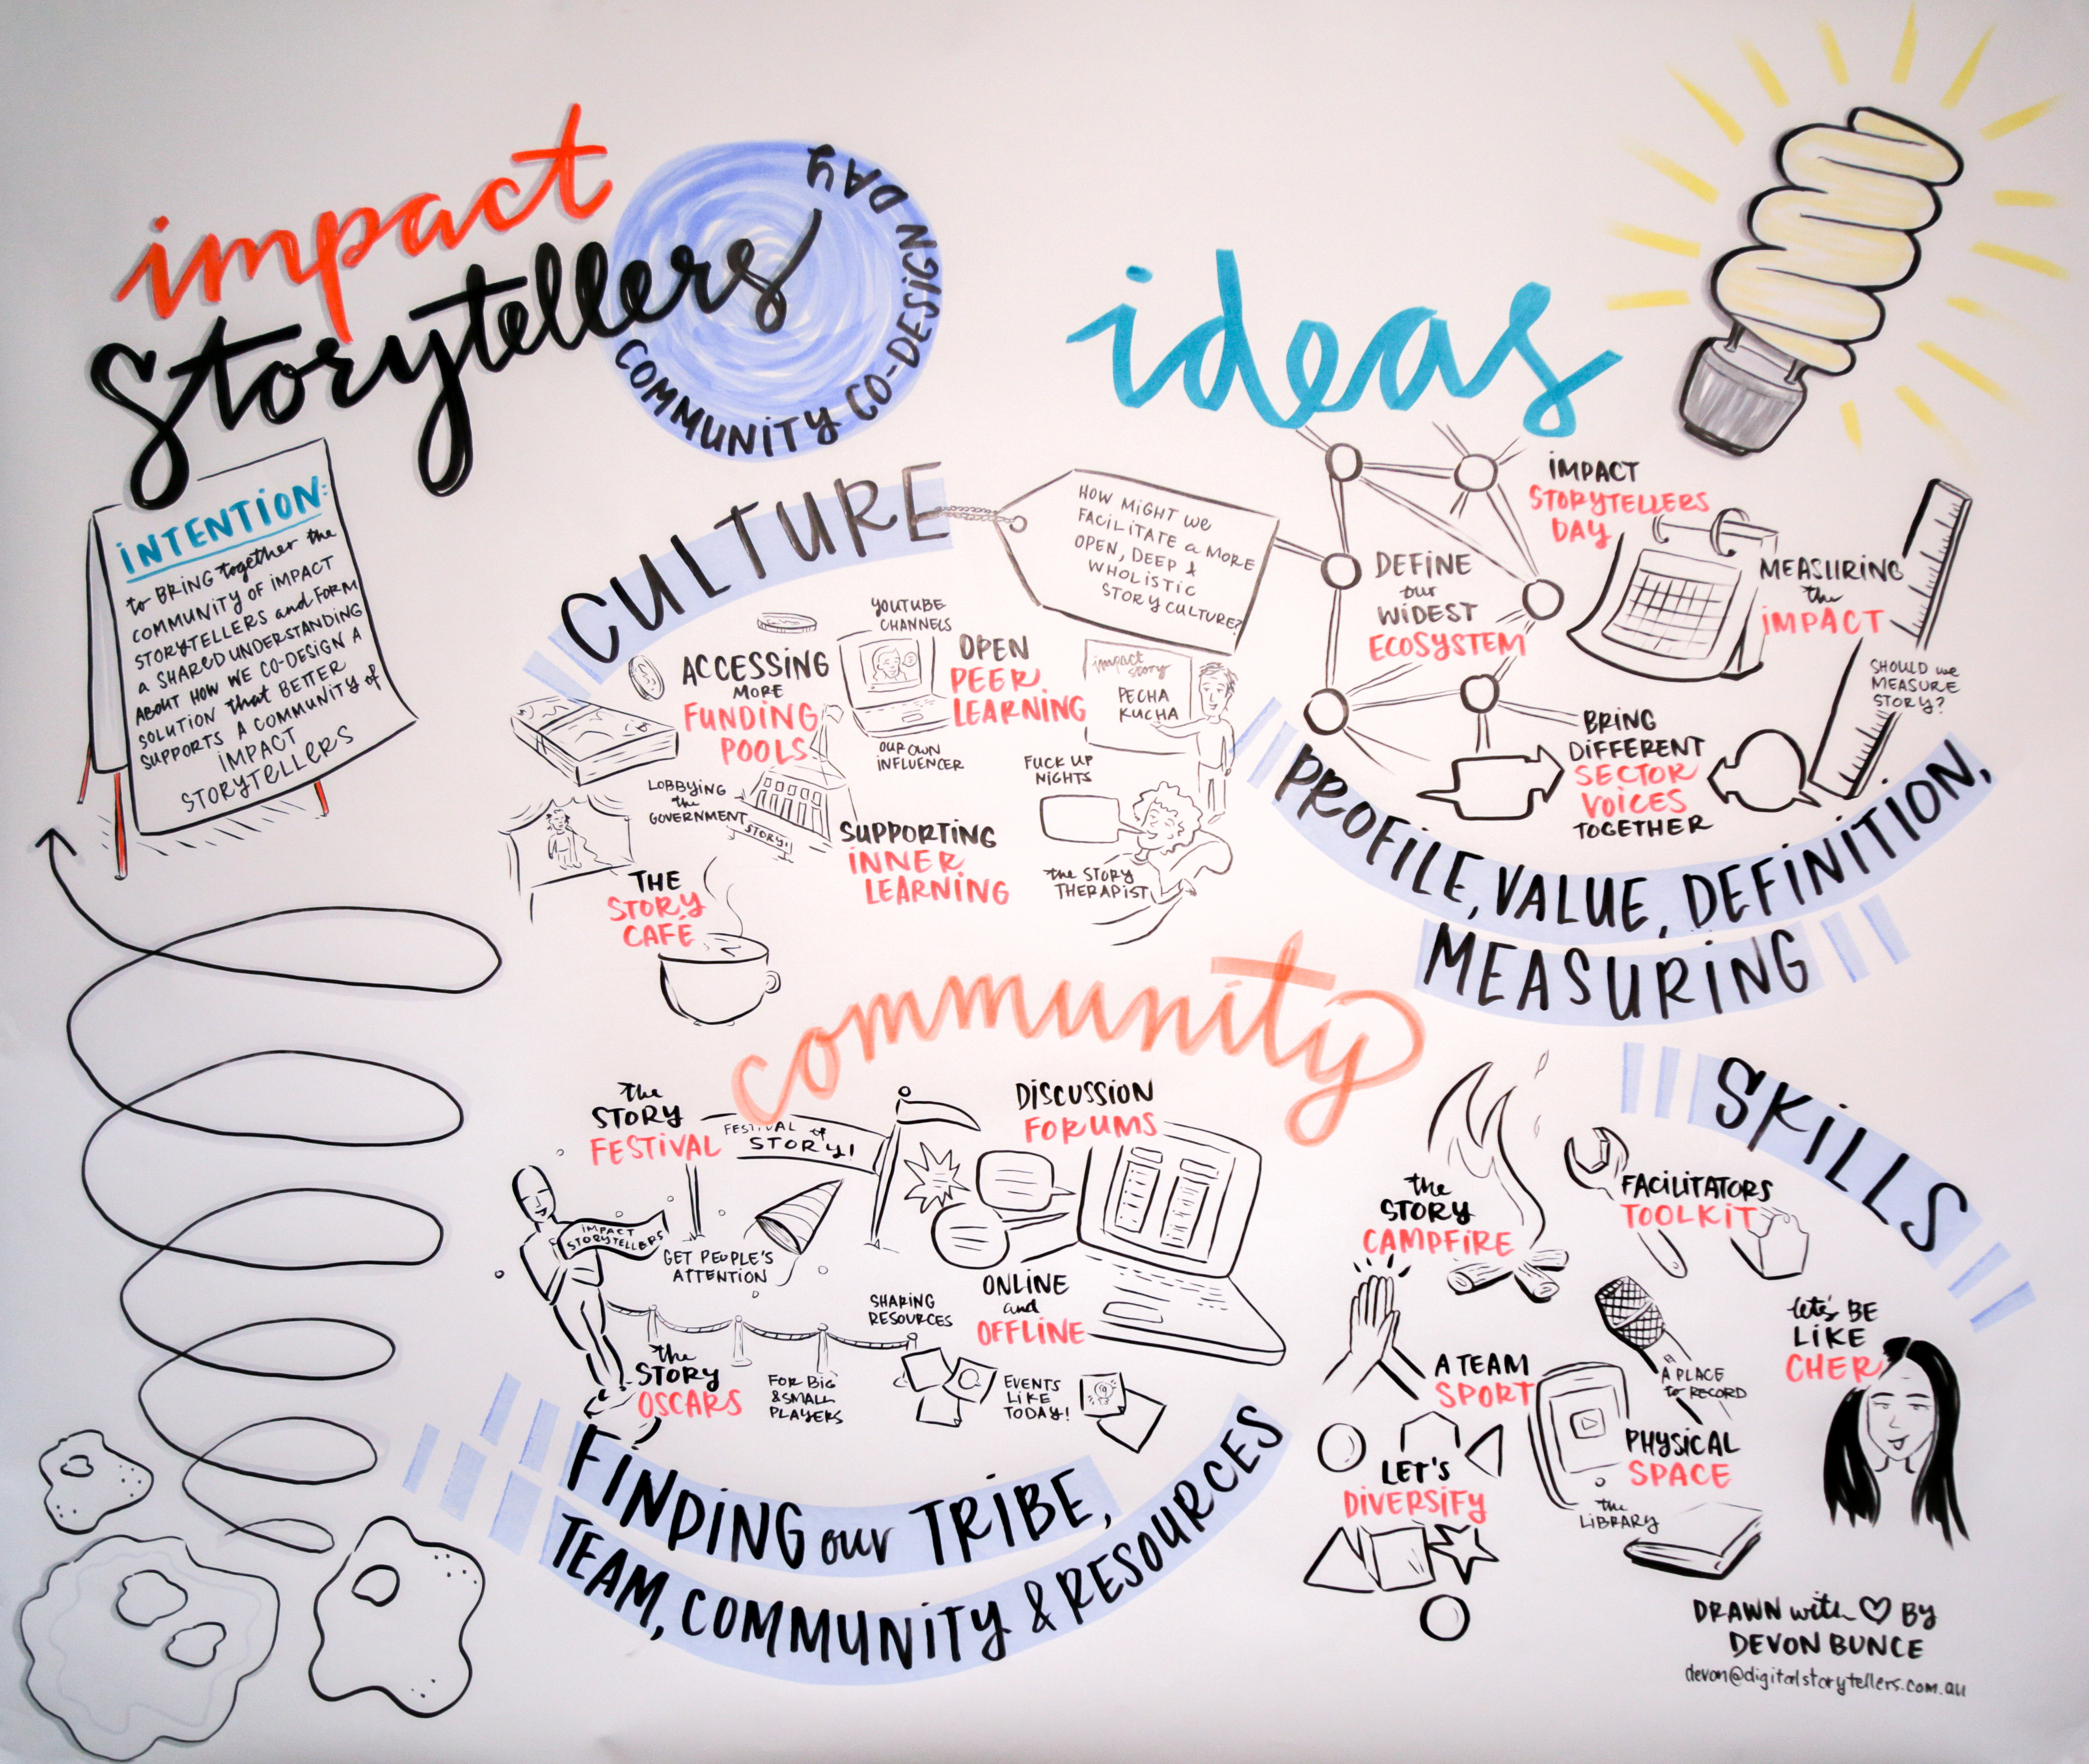 impact
Storytellers
COMMUNITY CO-DESIGN DAY
INTENTION:
to BRING together the
COMMUNITY OF IMPACT
STORYTELLERS and FORM
a SHARED UNDERSTANDING
ABOUT HOW WE CO-DESIGN A
SOLUTION that BETTER
SUPPORTS A COMMUNITY of
IMPACT
STORYTELLERS
ideas
CULTURE
HOW MIGHT we
FACILITATE a MORE
OPEN, DEEP &
WHOLISTIC
STORY CULTURE?
ACCESSING
MORE
FUNDING
POOLS
YOUTUBE
CHANNELS
OPEN
PEER
LEARNING
OUR OWN
INFLUENCER
impact
story
PECHA
KUCHA
FUCK UP
NIGHTS
LOBBYING
the
GOVERNMENT
STORY!
SUPPORTING
INNER
LEARNING
the STORY
THERAPIST
THE
STORY
CAFÉ
IMPACT
STORYTELLERS
DAY
DEFINE
our
WIDEST
ECOSYSTEM
MEASURING
the
IMPACT
SHOULD we
MEASURE
STORY?
BRING
DIFFERENT
SECTOR
VOICES
TOGETHER
PROFILE, VALUE, DEFINITION,
MEASURING
community
the
STORY
FESTIVAL
FESTIVAL of
STORY!
IMPACT
STORYTELLERS
GET PEOPLE'S
ATTENTION
the
STORY
OSCARS
FOR BIG
& SMALL
PLAYERS
DISCUSSION
FORUMS
ONLINE
and
OFFLINE
SHARING
RESOURCES
EVENTS
LIKE
TODAY!
FINDING our TRIBE,
TEAM, COMMUNITY & RESOURCES
SKILLS
the
STORY
CAMPFIRE
FACILITATORS
TOOLKIT
A TEAM
SPORT
A PLACE
to RECORD
let's BE
LIKE
CHER
LET'S
DIVERSIFY
PHYSICAL
SPACE
the
LIBRARY
DRAWN with ♡ BY
DEVON BUNCE
devon@digitalstorytellers.com.au